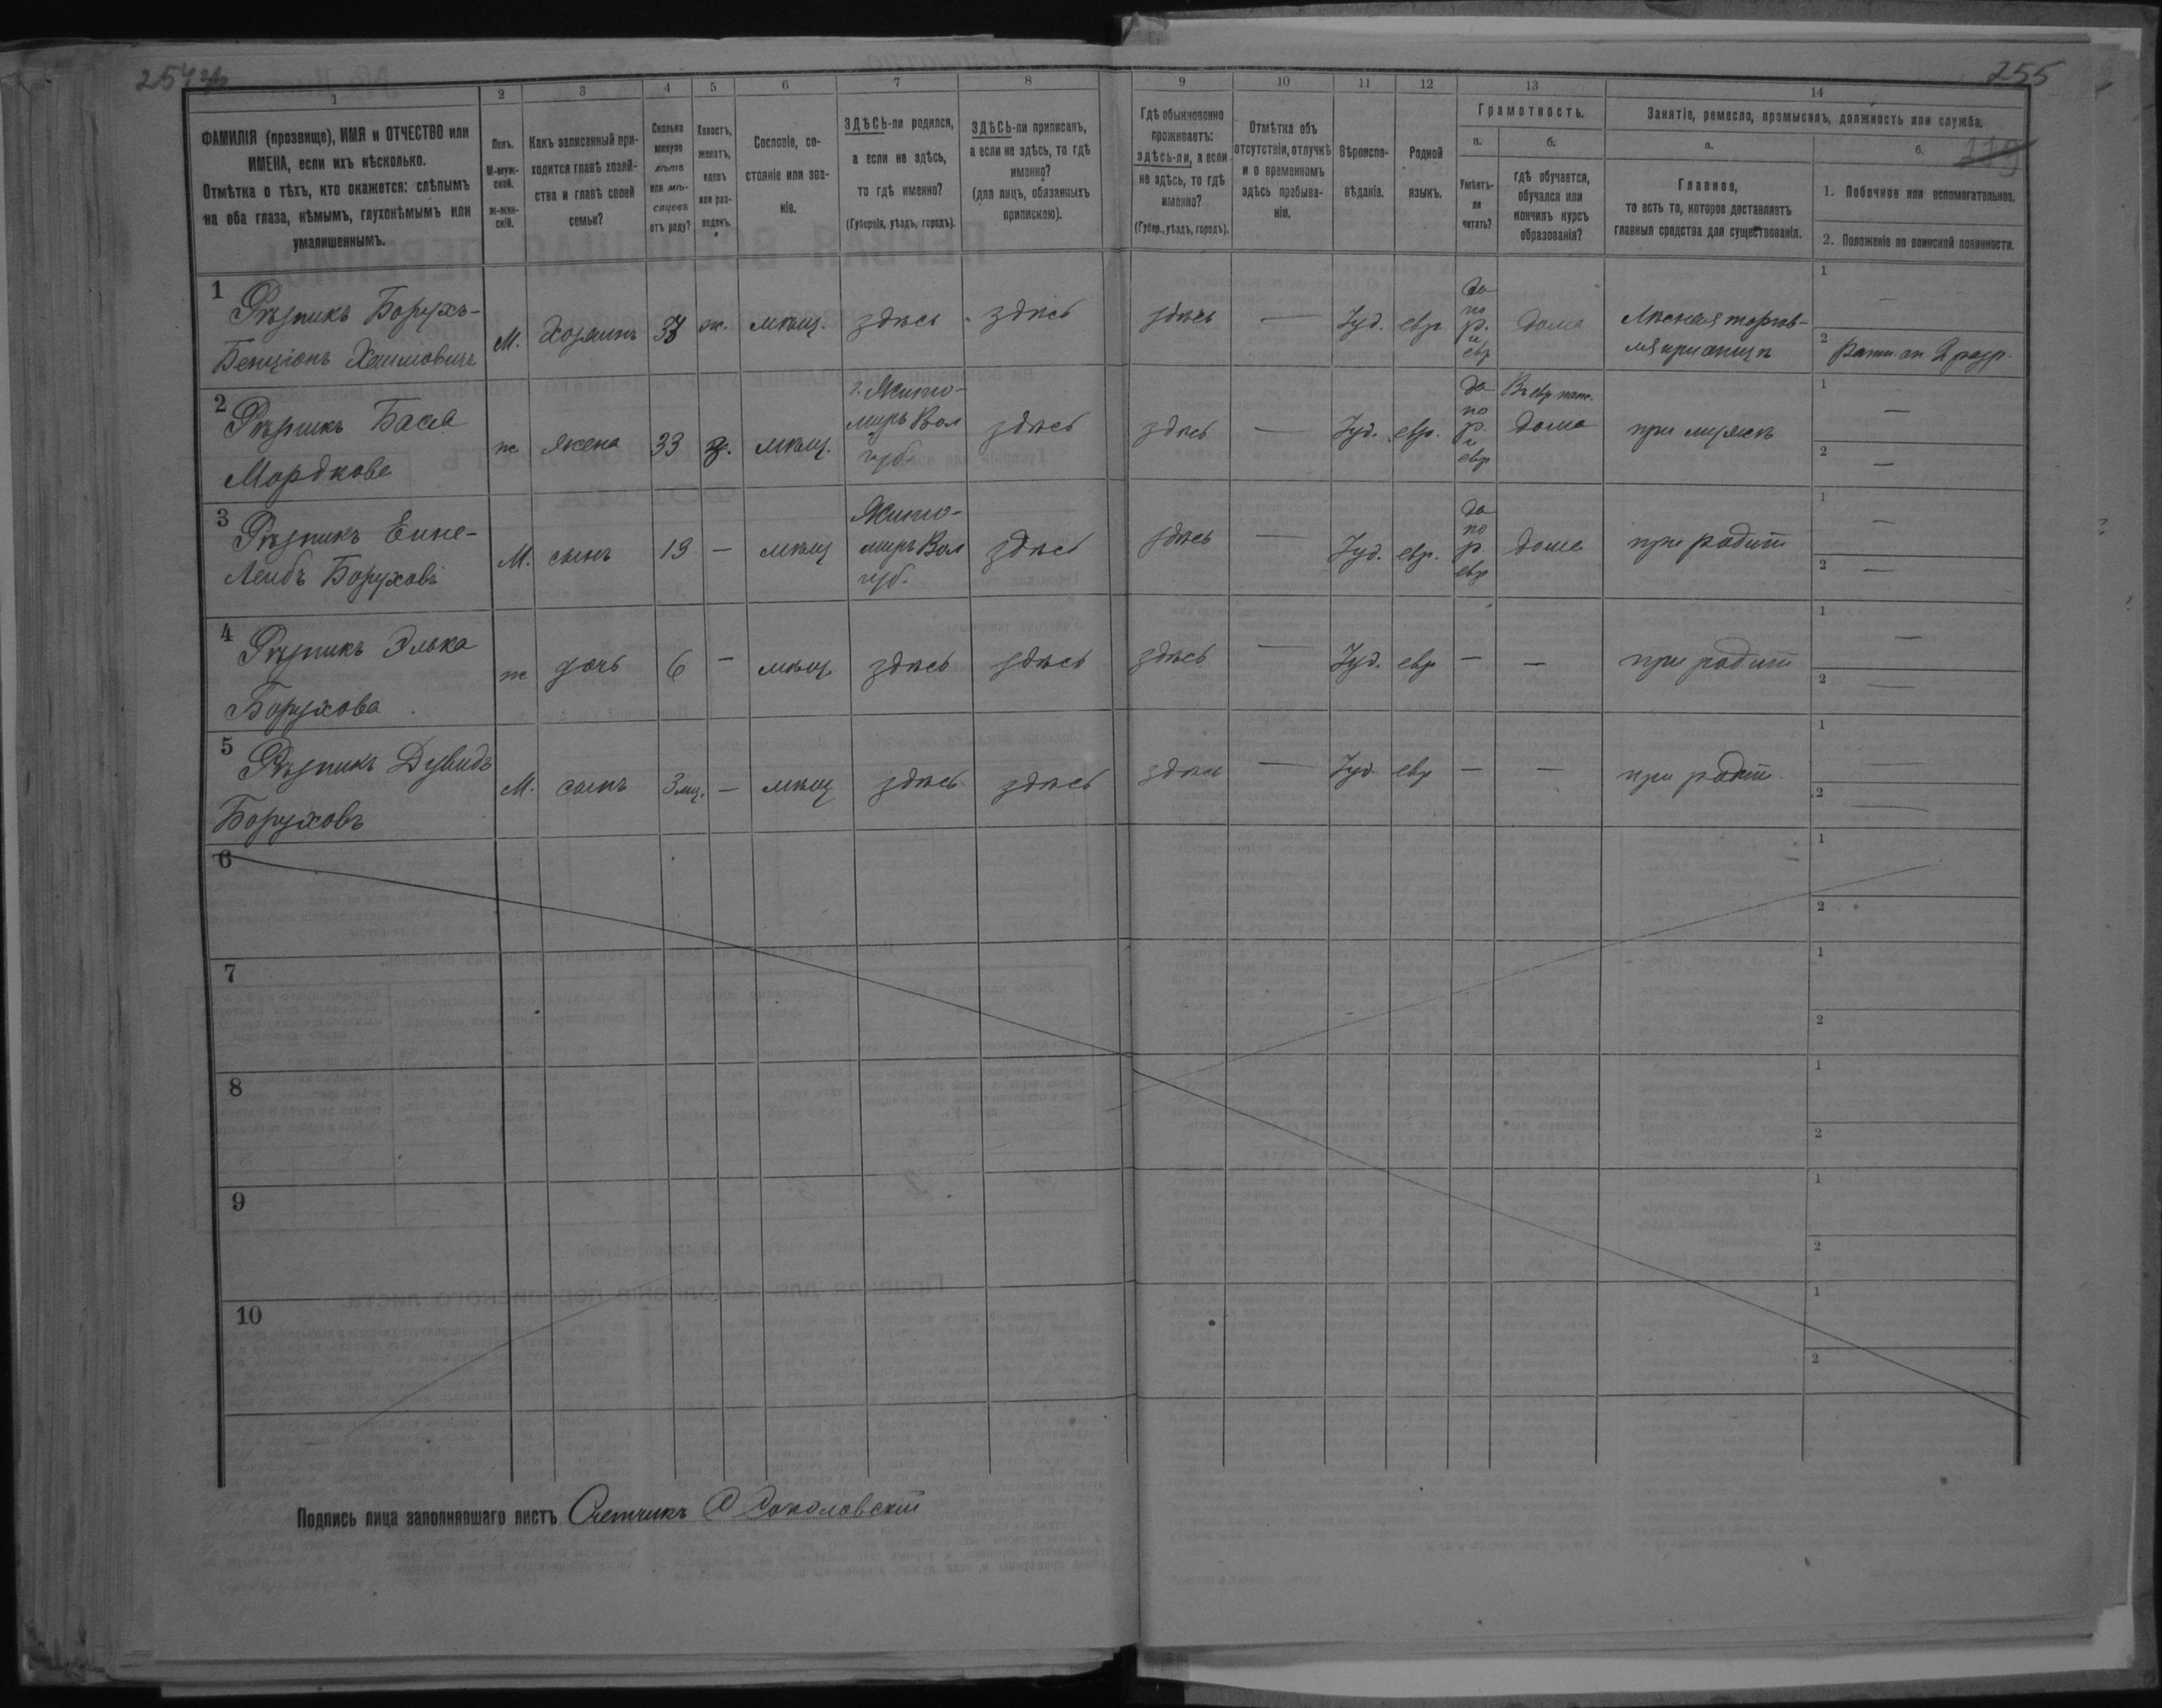 254
255
1
2
3
4
5
6
7
8
9
10
11
12
13
14
ФАМИЛІЯ (прозвище), ИМЯ и ОТЧЕСТВО или
ИМЕНА, если ихъ нѣсколько.
Отмѣтка о тѣхъ, кто окажется: слѣпымъ
на оба глаза, нѣмымъ, глухонѣмымъ или
умалишеннымъ.
Полъ.
М-муж-
ской.
ж-жен-
скій.
Какъ записанный при-
ходится главѣ хозяй-
ства и главѣ своей
семьи?
Сколько
минуло
лѣтъ
или мѣ-
сяцевъ
отъ роду?
Холостъ,
женатъ,
вдовъ
или раз-
веденъ.
Сословіе, со-
стояніе или зва-
ніе.
ЗДѢСЬ-ли родился,
а если не здѣсь,
то гдѣ именно?
(Губернія, уѣздъ, городъ).
ЗДѢСЬ-ли приписанъ,
а если не здѣсь, то гдѣ
именно?
(для лицъ, обязанныхъ
припискою).
Гдѣ обыкновенно
проживаетъ:
здѣсь-ли, а если
не здѣсь, то гдѣ
именно?
(Губер., уѣздъ, городъ).
Отмѣтка объ
отсутствіи, отлучкѣ
и о временномъ
здѣсь пребыва-
ніи.
Вѣроиспо-
вѣданіе.
Родной
языкъ.
Грамотность.
а.
Умѣетъ-
ли
читать?
б.
гдѣ обучается,
обучался или
кончилъ курсъ
образованія?
Занятіе, ремесло, промыселъ, должность или служба.
а.
Главное,
то есть то, которое доставляетъ
главныя средства для существованія.
б.
119
1. Побочное или вспомогательное.
2. Положеніе по воинской повинности.
1
Рѣзникъ Борухъ-
Бенціонъ Хаимовичъ
М. Хозяинъ 37 ж. мѣщ. здѣсь здѣсь здѣсь — Іуд. евр
да
по
р.
и
евр
дома
Лѣсная торгов-
ля
1 —
2 Ратн. оп 2 разр.
2
Рѣзникъ Бася
Мордкова
ж жена 33 з. мѣщ.
г. Жито-
миръ Вол
губ.
здѣсь здѣсь — Іуд. евр.
да
по
р.
и
евр
дома
при мужѣ
1 —
2 —
3
Рѣзникъ
Лейбъ Боруховъ
М. сынъ 13 — мѣщ
Жито-
миръ Вол
губ.
здѣсь здѣсь — Іуд. евр.
да
по
р.
евр
дома
при родит
1 —
2 —
4
Рѣзникъ Элька
Борухова
ж дочь 6 — мѣщ. здѣсь здѣсь здѣсь — Іуд. евр — — при родит
1 —
2 —
5
Рѣзникъ Дувидъ
Боруховъ
М. сынъ 3 мц. — мѣщ здѣсь здѣсь здѣсь — Іуд. евр — — при родит.
1 —
2 —
6
1
2
7
1
2
8
1
2
9
1
2
10
1
2
Подпись лица заполнявшаго листъ Счетчикъ С Соколовскій